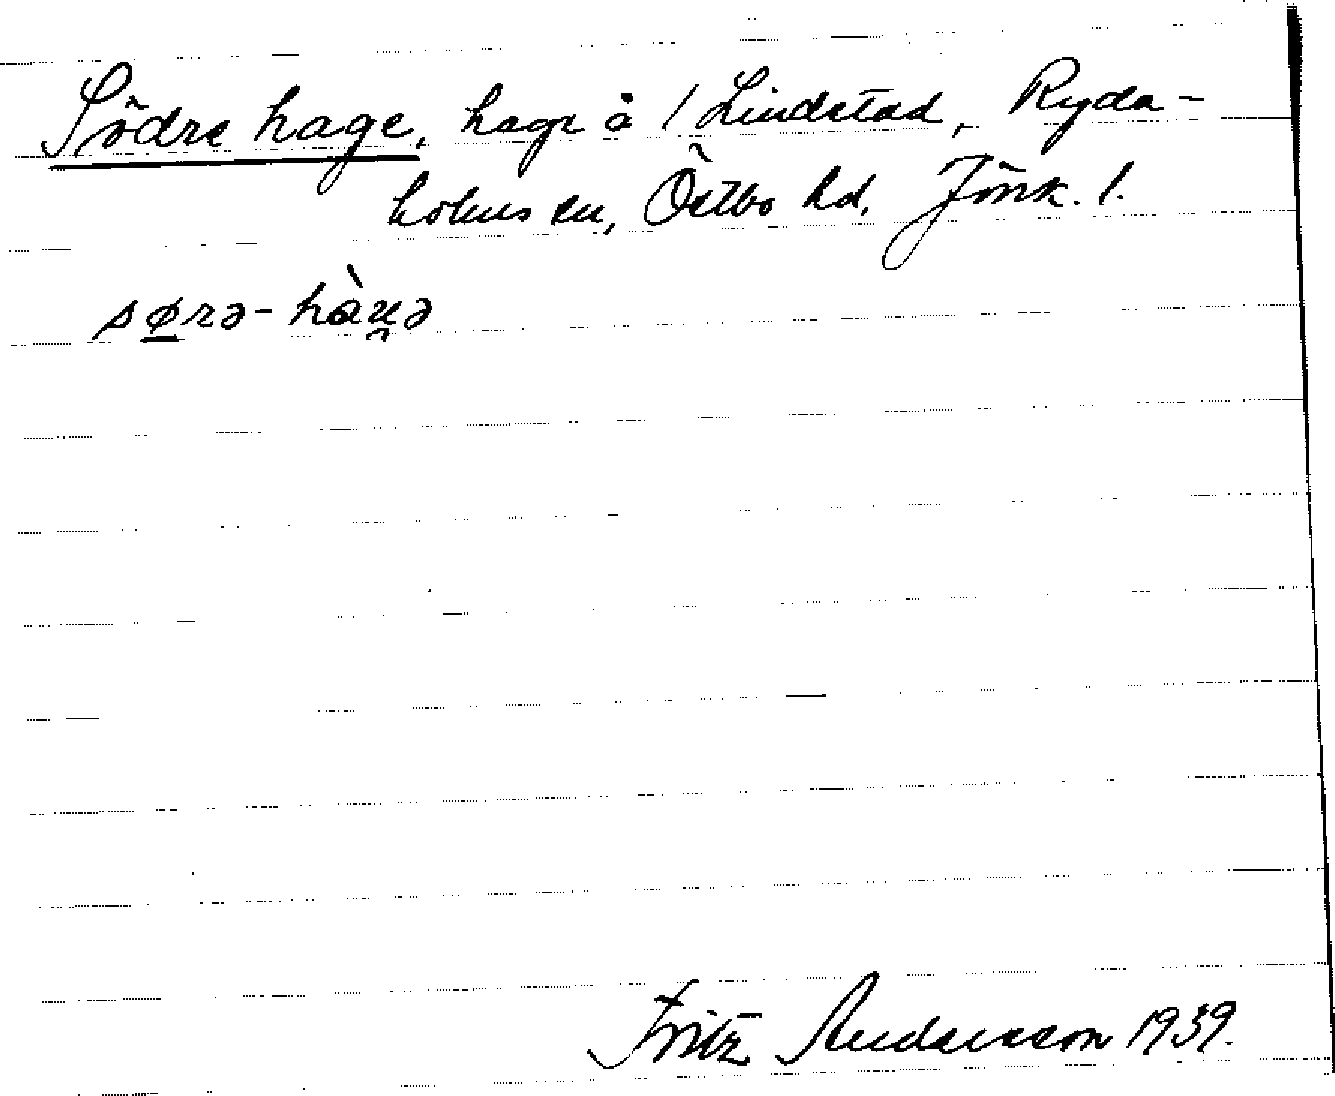 Södre hage, hage å 1 Lindstad, Ryda-
holms sn, Östbo hd, Jönk. l.
sørə-hàɤ̯ə
Fritz Andersson 1939.